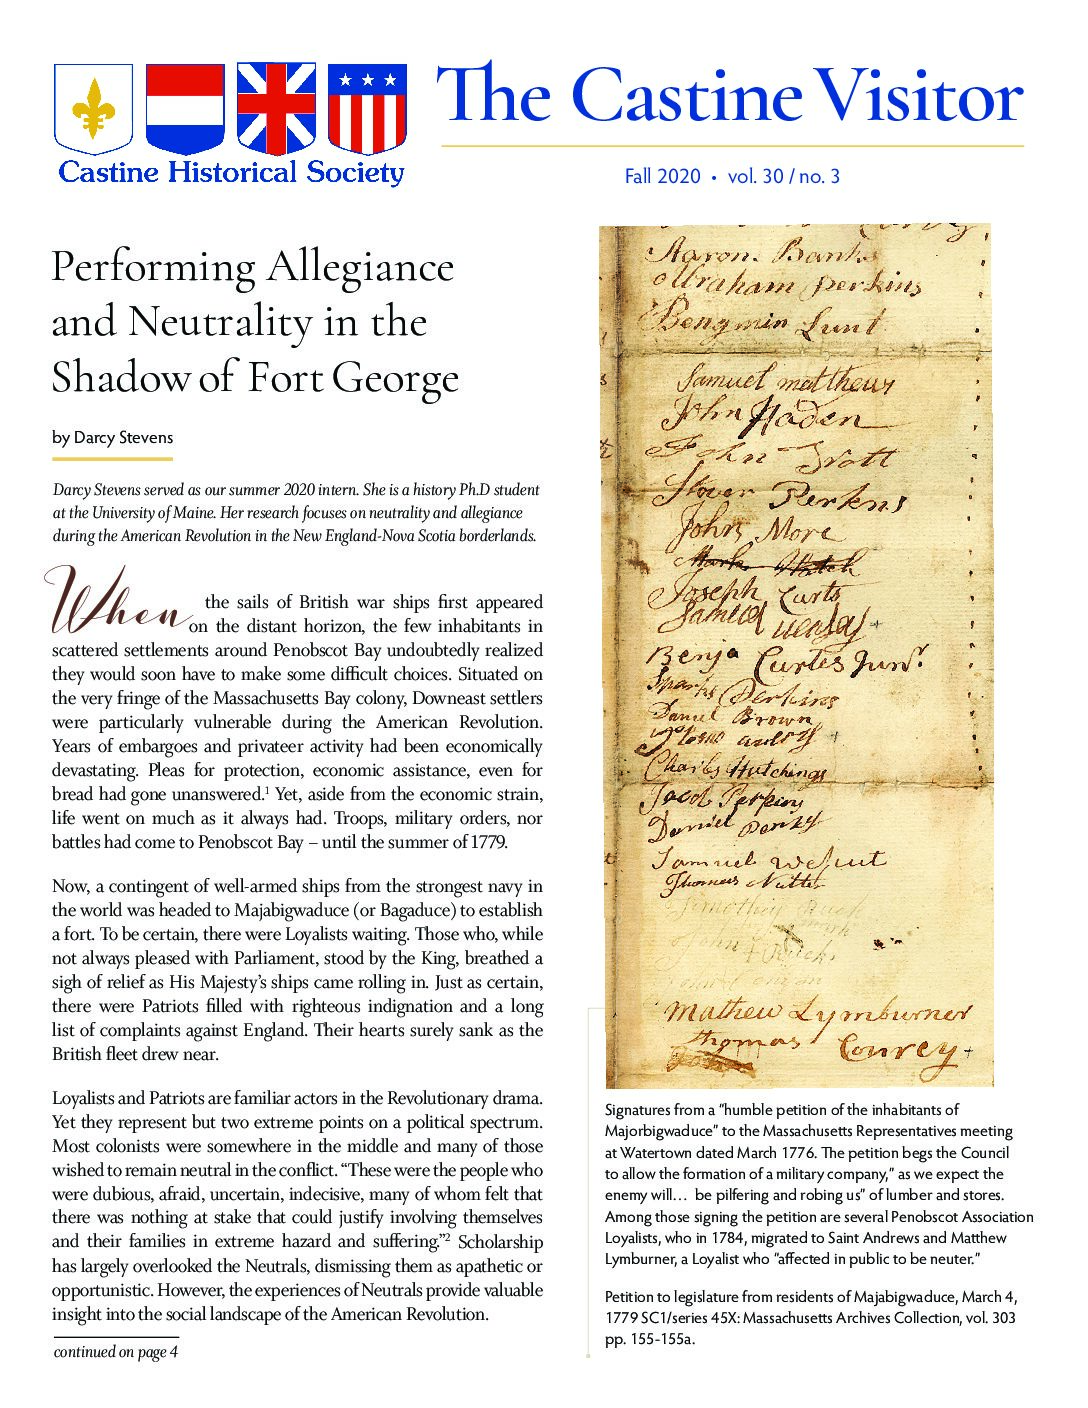 Castine Historical Society
The Castine Visitor
Fall 2020 • vol. 30 / no. 3
Performing Allegiance
and Neutrality in the
Shadow of Fort George
by Darcy Stevens
Darcy Stevens served as our summer 2020 intern. She is a history Ph.D student
at the University of Maine. Her research focuses on neutrality and allegiance
during the American Revolution in the New England-Nova Scotia borderlands.
When the sails of British war ships first appeared
on the distant horizon, the few inhabitants in
scattered settlements around Penobscot Bay undoubtedly realized
they would soon have to make some difficult choices. Situated on
the very fringe of the Massachusetts Bay colony, Downeast settlers
were particularly vulnerable during the American Revolution.
Years of embargoes and privateer activity had been economically
devastating. Pleas for protection, economic assistance, even for
bread had gone unanswered.¹ Yet, aside from the economic strain,
life went on much as it always had. Troops, military orders, nor
battles had come to Penobscot Bay – until the summer of 1779.
Now, a contingent of well-armed ships from the strongest navy in
the world was headed to Majabigwaduce (or Bagaduce) to establish
a fort. To be certain, there were Loyalists waiting. Those who, while
not always pleased with Parliament, stood by the King, breathed a
sigh of relief as His Majesty's ships came rolling in. Just as certain,
there were Patriots filled with righteous indignation and a long
list of complaints against England. Their hearts surely sank as the
British fleet drew near.
Loyalists and Patriots are familiar actors in the Revolutionary drama.
Yet they represent but two extreme points on a political spectrum.
Most colonists were somewhere in the middle and many of those
wished to remain neutral in the conflict. “These were the people who
were dubious, afraid, uncertain, indecisive, many of whom felt that
there was nothing at stake that could justify involving themselves
and their families in extreme hazard and suffering.”² Scholarship
has largely overlooked the Neutrals, dismissing them as apathetic or
opportunistic. However, the experiences of Neutrals provide valuable
insight into the social landscape of the American Revolution.
continued on page 4
Aaron Banks
Abraham Perkins
Bengmin Lunt
Samuel matthews
John Haden
John Trott
Stover Perkins
John More
Mark Hatch
Joseph Curts
Samuel
Benja Curtes Junr
Sparks Perkins
Daniel Brown
Charles Hutchings
Jacob Perkins
Daniel
Samuel
Thomas Nutter
Timothy
John
Mathew Lymburner
Thomas Conrey
Signatures from a “humble petition of the inhabitants of
Majorbigwaduce” to the Massachusetts Representatives meeting
at Watertown dated March 1776. The petition begs the Council
to allow the formation of a military company,” as we expect the
enemy will… be pilfering and robing us” of lumber and stores.
Among those signing the petition are several Penobscot Association
Loyalists, who in 1784, migrated to Saint Andrews and Matthew
Lymburner, a Loyalist who “affected in public to be neuter.”
Petition to legislature from residents of Majabigwaduce, March 4,
1779 SC1/series 45X: Massachusetts Archives Collection, vol. 303
pp. 155-155a.